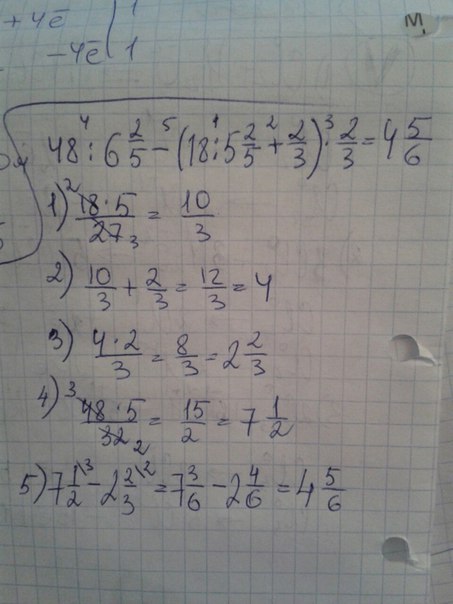 + 4ē | 1
- 4ē | 1
М.
48 :⁴ 6 2/5 -⁵ (18 :¹ 5 2/5 +² 2/3) ·³ 2/3 = 4 5/6
1) ²18 · 5 / 27₃ = 10/3
2) 10/3 + 2/3 = 12/3 = 4
3) 4 · 2 / 3 = 8/3 = 2 2/3
4) ³48 · 5 / 32₂ = 15/2 = 7 1/2
5) 7 1/2 \³ - 2 2/3 \² = 7 3/6 - 2 4/6 = 4 5/6